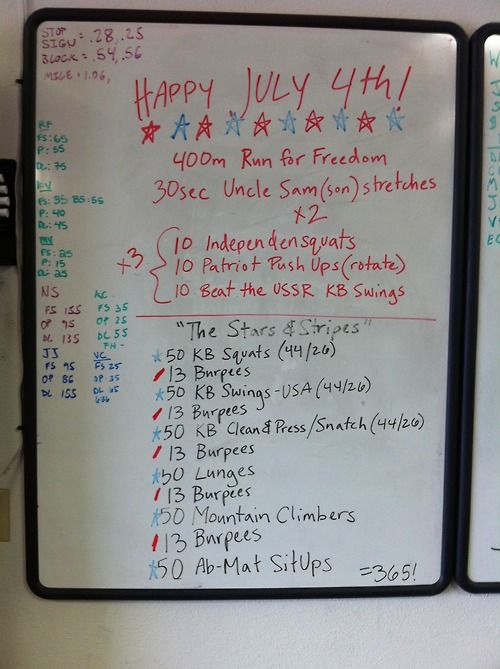 STOP
SIGN = .28, .25
BLOCK = .54, .56
MILE = 1.06,
HAPPY JULY 4th!
400m Run for Freedom
30sec Uncle Sam(son) stretches
x2
x3
10 Independensquats
10 Patriot Push Ups (rotate)
10 Beat the USSR KB Swings
"The Stars & Stripes"
50 KB Squats (44/26)
13 Burpees
50 KB Swings-USA (44/26)
13 Burpees
50 KB Clean & Press/Snatch (44/26)
13 Burpees
50 Lunges
13 Burpees
50 Mountain Climbers
13 Burpees
50 Ab-Mat SitUps
=365!
FS: 65
P: 55
DL: 75
FS: 95 BS: 55
P: 40
DL: 45
FS: 25
P: 15
DL: 25
NS
FS 155
OP 95
DL 135
KC
FS 35
OP 25
DL 55
FH -
JJ
FS 95
OP 86
DL 155
VC
FS 25
OP 35
DL 65